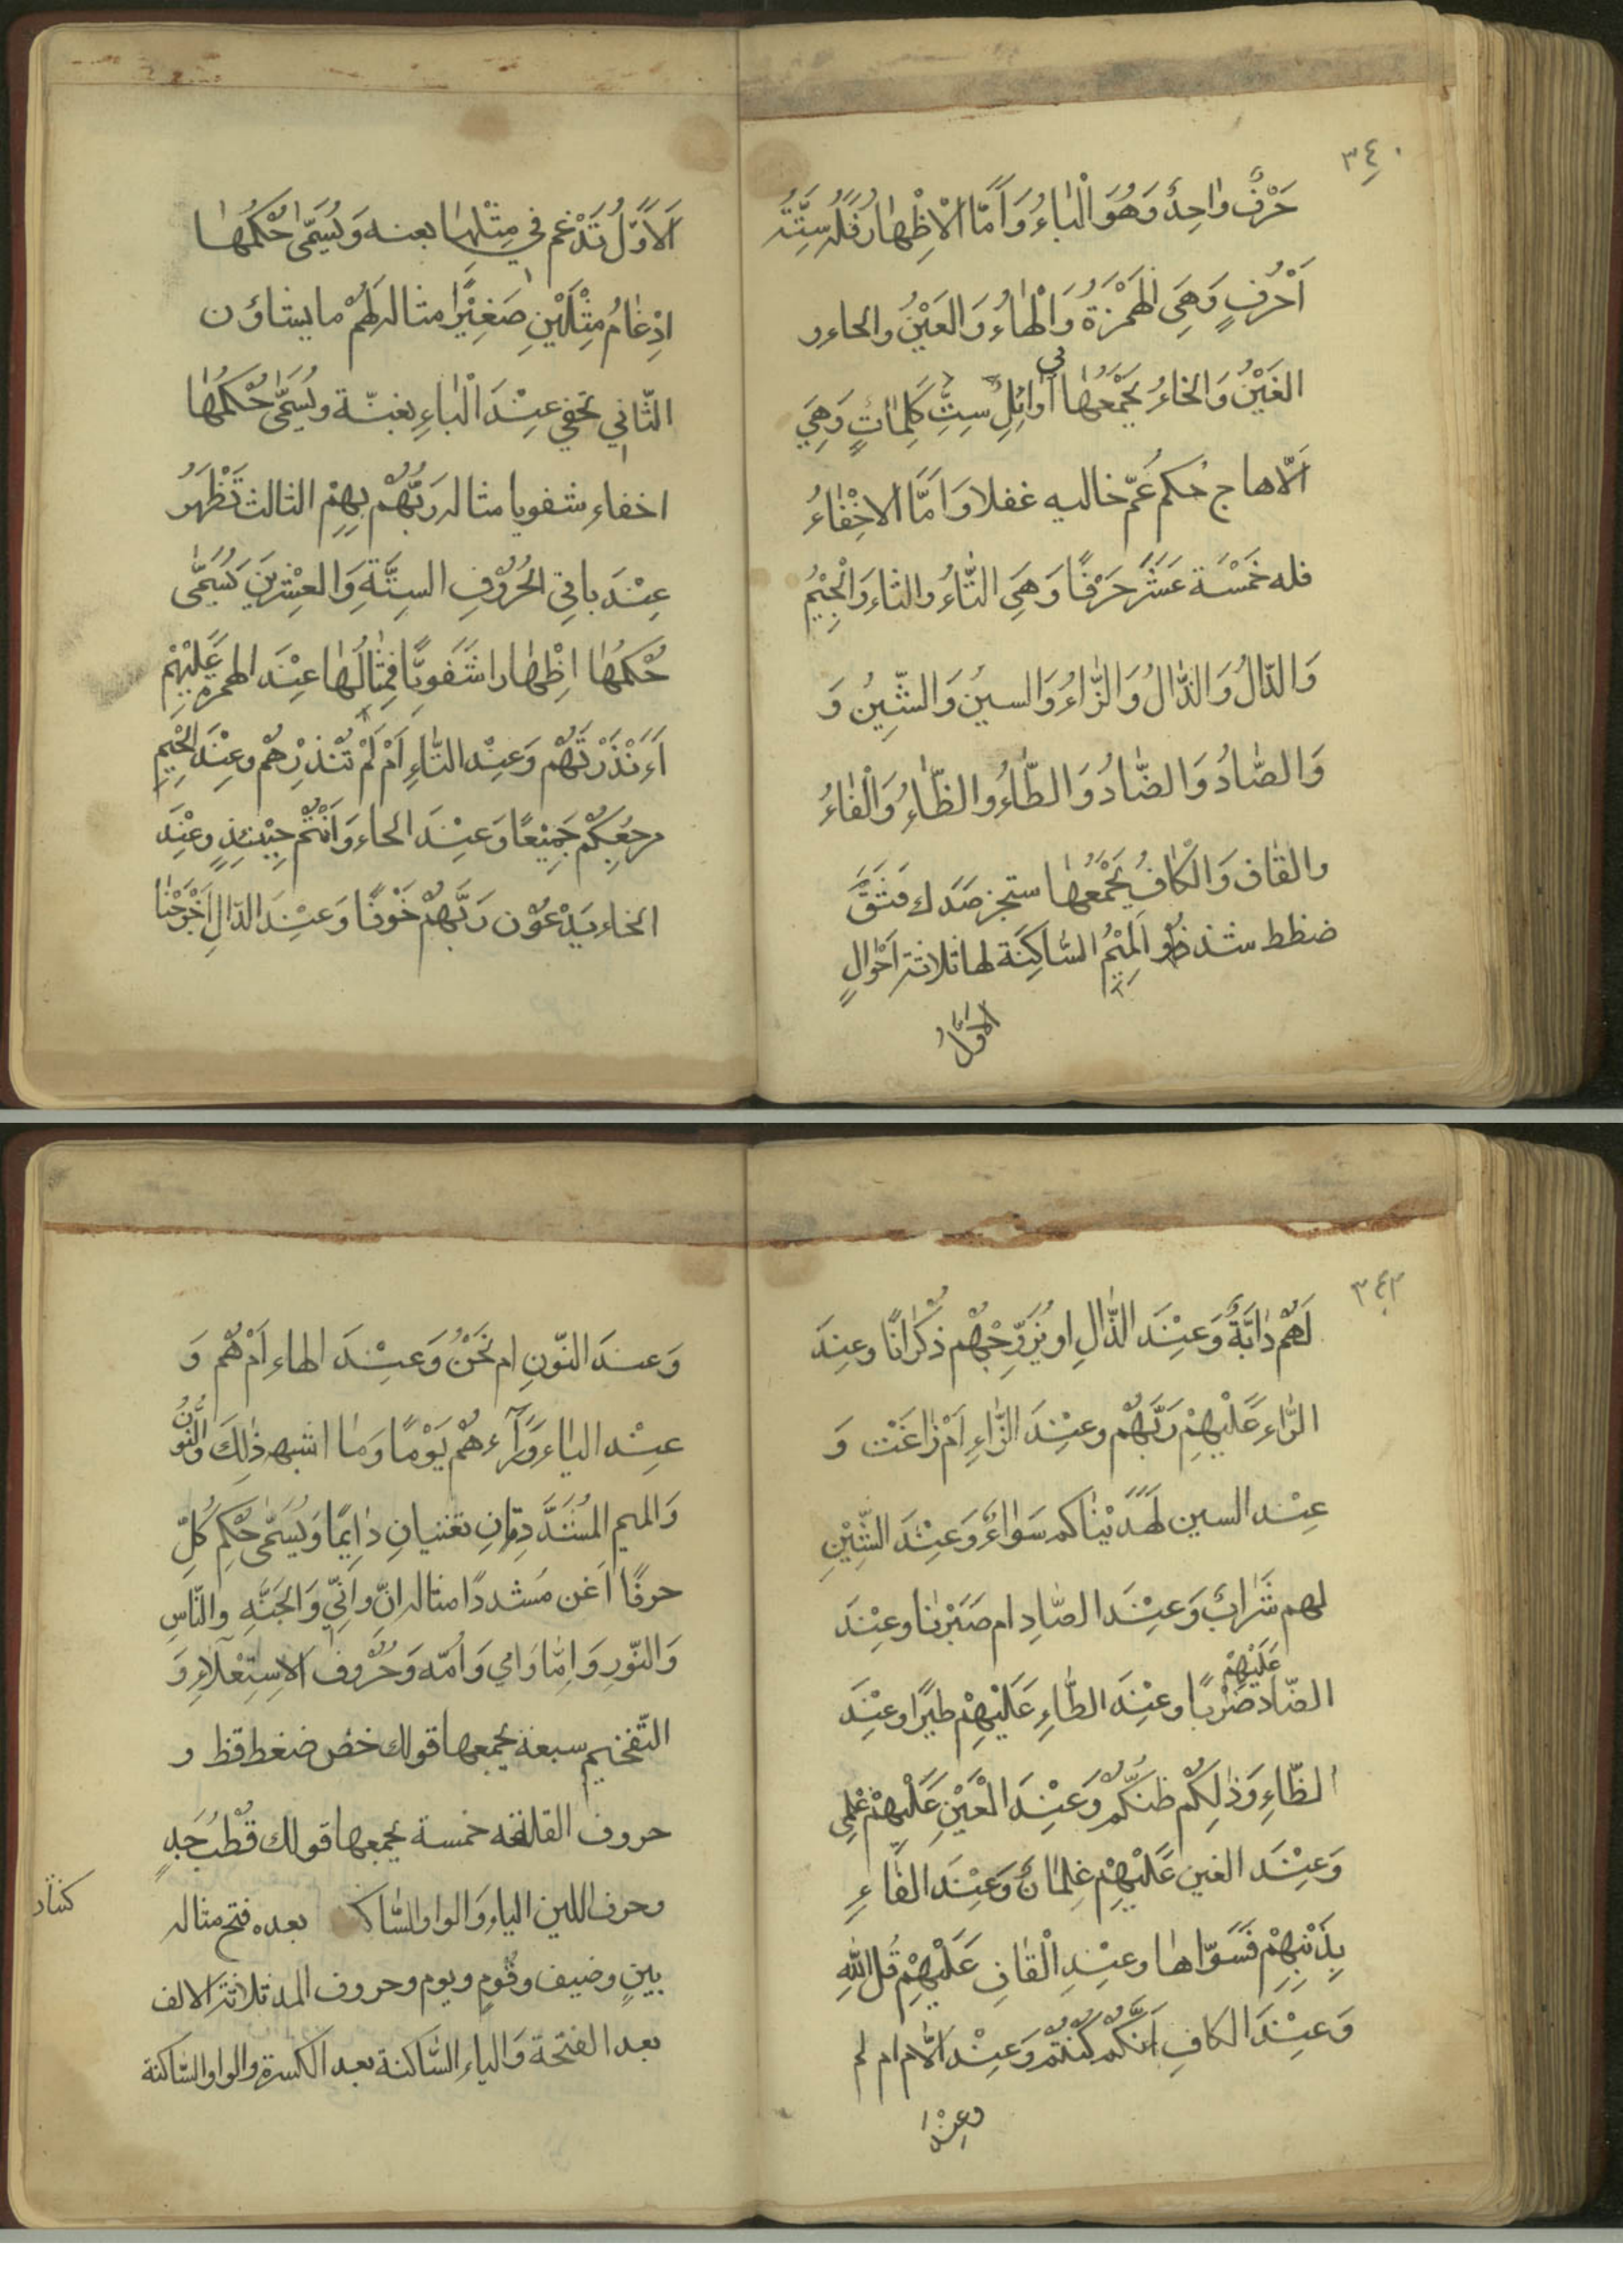 ٣٤٠
حَرْفٌ وٰاحِدٌ وَهُوَ الْبٰاءُ وَاَمَّا الْاِظْهٰارُ فَلَهُ سِتَّتُه
اَحْرُفٍ وَهِيَ الْهَمْزَةُ وَالْهٰاءُ وَالعَيْنُ والحاء و
الغَيْنُ وَالخٰاءُ يَجْمَعُهٰا فى اَوٰائِلِ سِتِّ كَلِمٰاتٍ وَهِيَ
اَلّا هاج حُكم عُمّ خاليه غفلا وَاَمَّا الاخْفٰاءُ
فله خَمْسَة عَشَرَ حَرْفًا وَهِيَ التّٰاءُ والثاءَ وَالْجِيْمُ
وَالدّالُ وَالذّٰالُ وَالزّٰاءُ وَالسينُ وَالشِّينُ وَ
وَالصّٰادُ وَالضّٰادُ وَالطّٰاءُ والظّٰاءُ وَالْفٰاءُ
والقٰاف وَالكٰافُ يَجْمَعُهٰا ستجز صَدَك فَثَقَّ
ضظط شذ ذو اَلْمِيْمُ السّٰاكِنَة لها ثلاثة اَحْوٰالٍ
الاَوَّلُ
اَلاَوَّلُ تُدْغم في مِثْلِهٰا بعنه وَيُسَمّٰى حُكْمُهٰا
اِدْغٰامُ مِثْلَيْنِ صَغِيْرًا مثاله لَهُمْ ما يشاؤن
الثّاني تخفي عِنْدَ الْبٰاءِ بغنّة ويُسَمّٰى حُكْمُهٰا
اخفاء شفويا مثاله رَبُّهُمْ بِهِمْ الثالث تَظْهَرُ
عِنْدَ باقِي الحُرُوْفِ السِتَّةِ وَالعِشْرِينَ يُسَمّٰى
حُكْمُهٰا اِظْهٰارا شَفَويًّا فَمِثٰالُهٰا عِنْدَ الهمزه عَلَيْهِمْ
اَءَنْذَرْتَهُمْ وَعِنْد التّٰاءِ اَمْ لَمْ تُنْذِرْهُمْ وعِنْدَ الجِيْمِ
مرجِعُكُمْ جَمِيْعًا وَعِنْدَ الحاء وَاَنْتُمْ حِيْنئِذٍ وعِنْدَ
الخاء يَدْعُوْن رَبَّهُمْ خَوْفًا وَعِنْدَ الدّالِ اَخْرَجْنٰا
٣٤٢
لَهُمْ دٰابَّةً وَعِنْدَ الذّٰالِ او يُزَوِّجُهُمْ ذُكْرٰانًا وعِندَ
الرّٰاء عَلَيْهِمْ رَبُّهُمْ وعِنْدَ الزّٰاءِ اَمْ زٰاغَتْ وَ
عِنْد السين لَهَدَيْنٰاكم سَوٰاءٌ وَعِنْدَ الشِّيْنِ
لهم شَرٰابٌ وَعِنْدَ الصّٰادِ ام صَبَرْنٰا وعِنْدَ
الضّاد عَلَيْهِمْ ضَرْبًا وعِنْدَ الطّٰاءِ عَلَيْهِمْ طيرًا وعِنْدَ
الظّاءِ وَذٰلِكُمْ ظنّكُمُ وَعِنْدَ الْعَيْنِ عَلَيْهِمْ عْلِمِى
وَعِنْدَ الغين عَلَيْهِمْ غِلمٰانٌ وَعِنْدَ الفٰاءِ
بِذَنْبِهِمْ فَسَوّاهٰا وعِنْدِ الْقٰافِ عَلَيْهِمْ قُل اللّٰهِ
وَعِنْدَ الكافِ اَنَّكُمْ كُنْتُمْ وَعِنْد اللّٰام ام لم
وعِنْدَ
وَعندَ النّونِ ام نَحْنُ وَعِنْدَ الهاء اَمْ هُم وَ
عِنْد الياء وَرٰآءَهُمْ يَوْمًا وَمٰا اشبه ذٰلِكَ وَالنُّوْنُ
وَالميم المُشَدَّدِتٰانِ تغنيانِ دٰايِمًا وَيُسَمّٰى حُكم كُلّ
حرفًا اَغن مَشددًا مثاله انّ وانّي وَالْجَنَّهِ والنّاسِ
وَالنّورِ وَامّا وَامي وَاُمّه وَحُرُوف الاسِتِعْلآءِ وَ
التّفخيم سبعة يجمعها قولك خصُ ضغط قظ و
حروف القلقه خمسة يجمعها قولك قُطْبُ جَدٍ
وحرف اللين الياء وَالواو السّاكـ بعده فتح مثاله
بينٍ وضيف وقومٍ ويوم وحروف المد ثلاثة الالف
بعد الفتحة وَالياء السّاكنة بعد الكسرة والواو السّاكنة